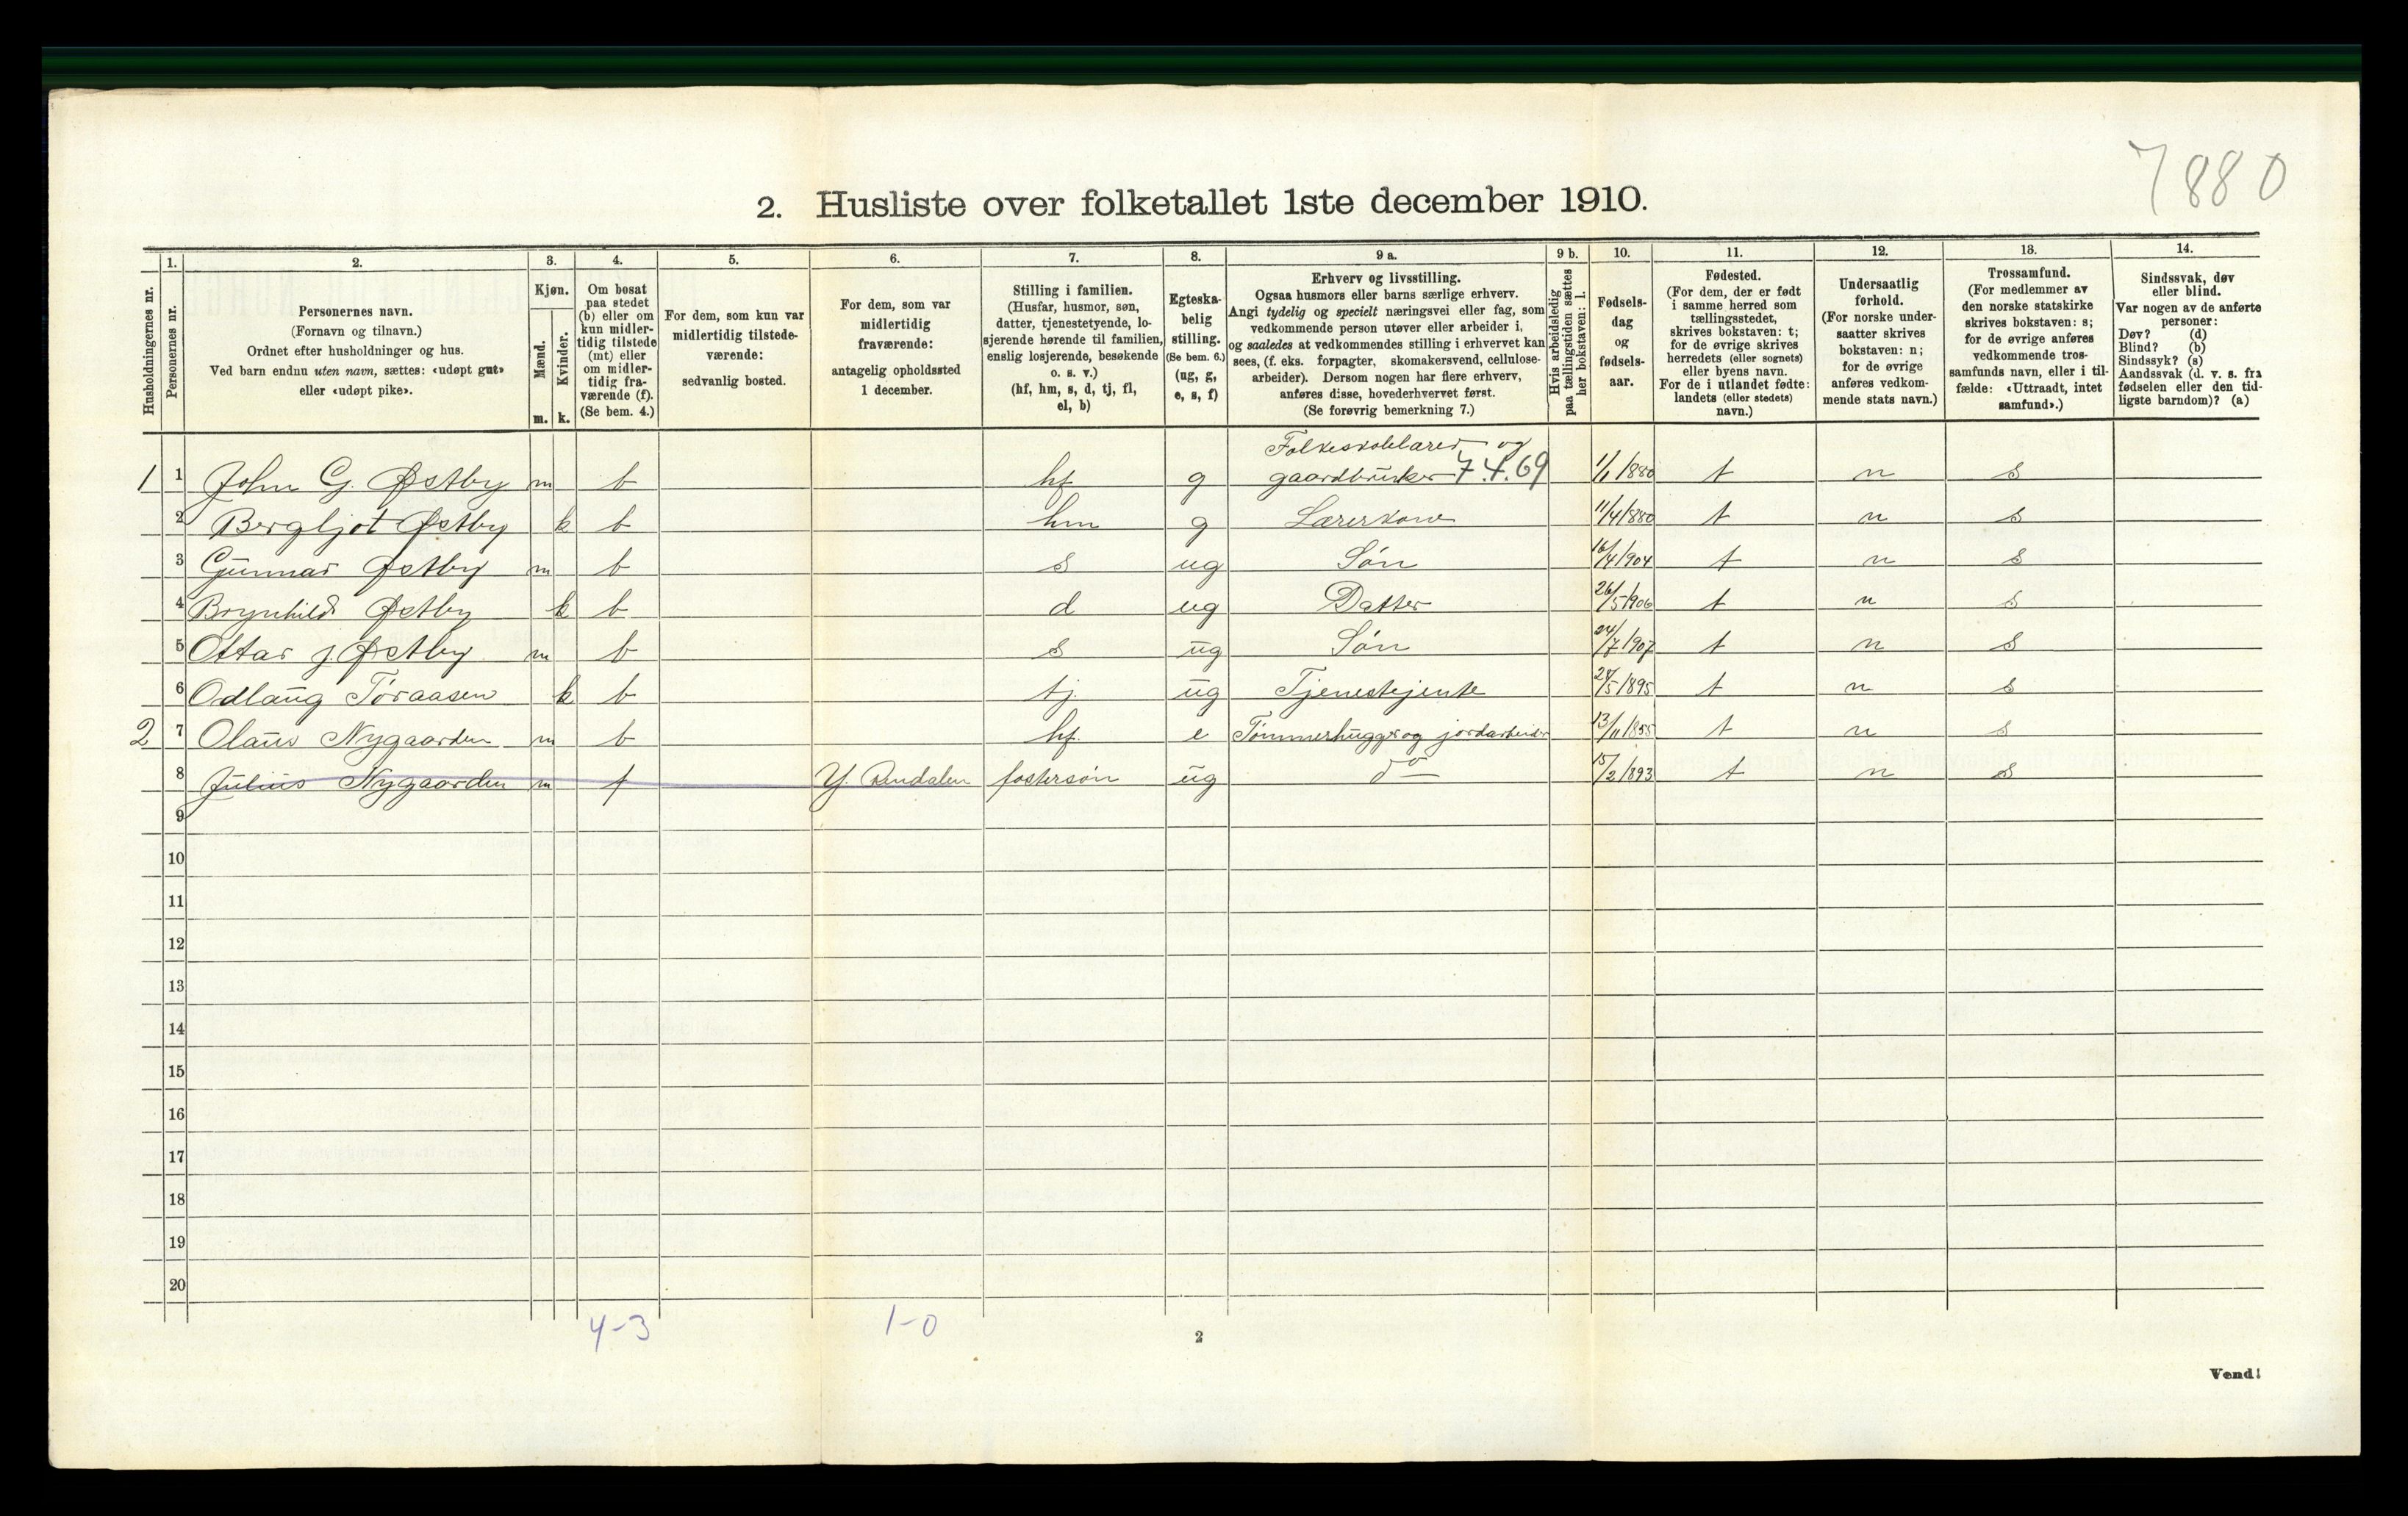 7880
2. Husliste over folketallet 1ste december 1910.
Husholdningernes nr.
1.
Personernes nr.
2.
Personernes navn.
(Fornavn og tilnavn.)
Ordnet efter husholdninger og hus.
Ved barn endnu uten navn, sættes: «udøpt gut»
eller «udøpt pike».
3.
Kjøn.
Mænd.
Kvinder.
m. k.
4.
Om bosat
paa stedet
(b) eller om
kun midler-
tidig tilstede
(mt) eller
om midler-
tidig fra-
værende (f).
(Se bem. 4.)
5.
For dem, som kun var
midlertidig tilstede-
værende:
sedvanlig bosted.
6.
For dem, som var
midlertidig
fraværende:
antagelig opholdssted
1 december.
7.
Stilling i familien.
(Husfar, husmor, søn,
datter, tjenestetyende, lo-
sjerende hørende til familien,
enslig losjerende, besøkende
o. s. v.)
(hf, hm, s, d, tj, fl,
el, b)
8.
Egteska-
belig
stilling.
(Se bem. 6.)
(ug, g,
e, s, f)
9 a.
Erhverv og livsstilling.
Ogsaa husmors eller barns særlige erhverv.
Angi tydelig og specielt næringsvei eller fag, som
vedkommende person utøver eller arbeider i,
og saaledes at vedkommendes stilling i erhvervet kan
sees, (f. eks. forpagter, skomakersvend, cellulose-
arbeider). Dersom nogen har flere erhverv,
anføres disse, hovederhvervet først.
(Se forøvrig bemerkning 7.)
9 b.
Hvis arbeidsledig
paa tællingstiden sættes
her bokstaven: l.
10.
Fødsels-
dag
og
fødsels-
aar.
11.
Fødested.
(For dem, der er født
i samme herred som
tællingsstedet,
skrives bokstaven: t;
for de øvrige skrives
herredets (eller sognets)
eller byens navn.
For de i utlandet fødte:
landets (eller stedets)
navn.)
12.
Undersaatlig
forhold.
(For norske under-
saatter skrives
bokstaven: n;
for de øvrige
anføres vedkom-
mende stats navn.)
13.
Trossamfund.
(For medlemmer av
den norske statskirke
skrives bokstaven: s;
for de øvrige anføres
vedkommende tros-
samfunds navn, eller i til-
fælde: «Uttraadt, intet
samfund».)
14.
Sindssvak, døv
eller blind.
Var nogen av de anførte
personer:
Døv? (d)
Blind? (b)
Sindssyk? (s)
Aandssvak (d. v. s. fra
fødselen eller den tid-
ligste barndom)? (a)
Folkeskolelærer og
1 1 John G. Østby m b hf g gaardbruker 7.4.69 1/1 1880 t n s
2 Bergljot Østby k b hm g Lærerkone 11/4 1880 t n s
3 Gunnar Østby m b s ug Søn 16/4 1904 t n s
4 Brynhild Østby k b d ug Datter 26/5 1906 t n s
5 Ottar J. Østby m b s ug Søn 24/7 1907 t n s
6 Odlaug Toraasen k b tj. ug Tjenestejente 24/5 1895 t n s
2 7 Olaus Nygaarden m b hf. e Tømmerhugger og jordarbeider 13/11 1855 t n s
8 Julius Nygaarden m f Y. Rendalen fostersøn ug do 15/2 1893 t n s
9
10
11
12
13
14
15
16
17
18
19
20
4-3 1-0
2
Vend!